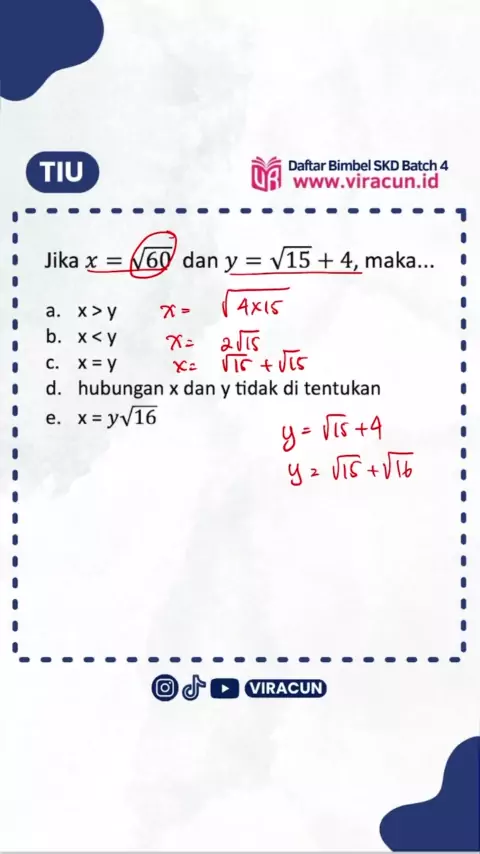 TIU
Daftar Bimbel SKD Batch 4
www.viracun.id
Jika x = √60 dan y = √15 + 4, maka...
a. x > y
b. x < y
c. x = y
d. hubungan x dan y tidak di tentukan
e. x = y√16
x = √4×15
x = 2√15
x = √15 + √15
y = √15 + 4
y = √15 + √16
VIRACUN